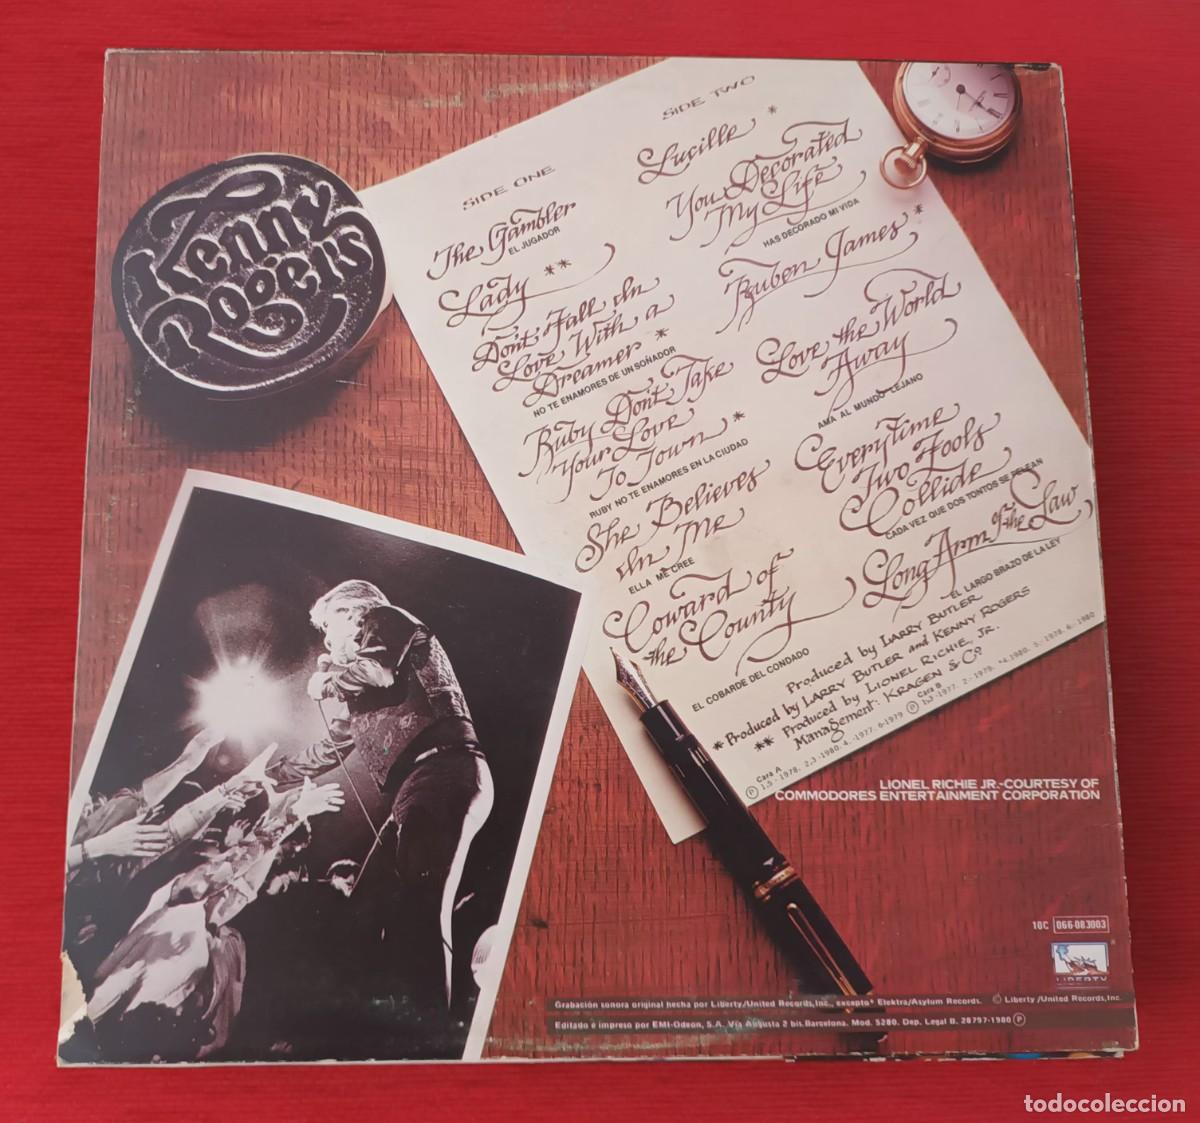 Kenny
Rogers
SIDE ONE
The Gambler
EL JUGADOR
Lady **
Don't Fall In
Love With a
Dreamer *
NO TE ENAMORES DE UN SOÑADOR
Ruby Don't Take
Your Love
To Town *
RUBY NO TE ENAMORES EN LA CIUDAD
She Believes
In Me
ELLA ME CREE
Coward of
the County
EL COBARDE DEL CONDADO
SIDE TWO
Lucille *
You Decorated
My Life
HAS DECORADO MI VIDA
Ruben James *
Love the World
Away
AMA AL MUNDO LEJANO
Everytime
Two Fools
Collide
CADA VEZ QUE DOS TONTOS SE PELEAN
Long Arm of the Law
EL LARGO BRAZO DE LA LEY
Produced by LARRY BUTLER
* Produced by LARRY BUTLER and KENNY ROGERS
** Produced by LIONEL RICHIE, JR.
Management: KRAGEN & Co
Cara A
Ⓟ 1,5.-1978, 2,3.-1980, 4.-1977, 6-1979
Cara B
Ⓟ 1,3-1977, 2.-1979, *4.1980, 5.-1978, 6.-1980
LIONEL RICHIE JR.-COURTESY OF
COMMODORES ENTERTAINMENT CORPORATION
10C 066-083003
LIBERTY
Grabación sonora original hecha por Liberty/United Records, Inc., excepto* Elektra/Asylum Records. © Liberty /United Records, Inc.
Editado e impreso por EMI-Odeon, S.A. Vía Augusta 2 bis. Barcelona. Mod. 5280. Dep. Legal B. 28797-1980 Ⓟ
todocoleccion